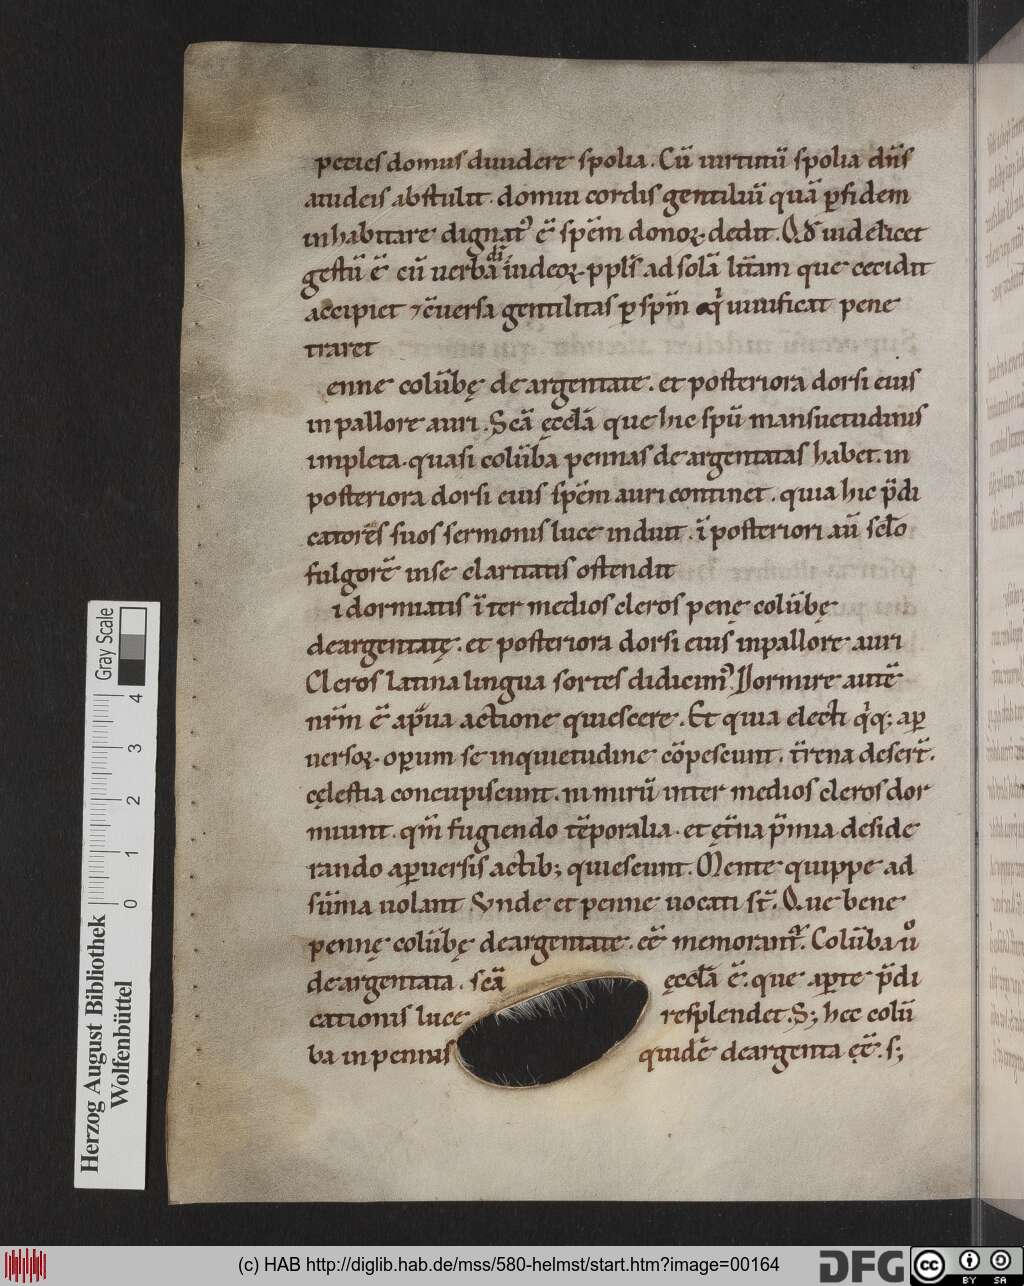 peties domus diuidere spolia. Cū uirtutū spolia dn̄s
audeis abstulit. domui cordis gentiliū quā ꝑfidem
inhabitare dignatꝰ ē sp̄em donoꝝ dedit. Qd̄ uidelicet
gestū ē cū uerba dī iudeoꝝ ppl̄s ad solā lr̄am que cecidit
accipiet ⁊ c̄uersa gentilitas ꝑ sp̄m q̇ uiuificat pene
traret
enne colūbę deargentate. et posteriora dorsi eius
in pallore auri. Scā ęccl̄a que hic spū mansuetudinis
impleta. quasi colūba pennas deargentatas habet. in
posteriora dorsi eius sp̄em auri continet. quia hic p̄di
catores suos sermonis luce induit. ī posteriori aū scl̄o
fulgorē in se claritatis ostendit
i dormiatis īter medios cleros penę colūbę
deargentatę. et posteriora dorsi eius inpallore auri
Cleros latina lingua sortes didicimꝰ. Dormire autē
nr̄m ē a p̄ua actione quiescere. Et quia electi q̇q; a ꝑ
uersoꝝ operum se inquietudine cōpescunt. t̄rena deser̄t.
cęlestia concupiscunt. ni mirū inter medios cleros dor
miunt. qm̄ fugiendo tēporalia. et ęt̄na p̄mia deside
rando a ꝑuersis actib; quiescunt. Mente quippe ad
sūma uolant. Vnde et penne uocati st̄. Que bene
pennę colūbę deargentate. eē memorant᷑. Colūba uͦ
deargentata. scā ęccl̄a ē. que aꝑte p̄di
cationis luce resplendet. S; hec colū
ba in pennis quidē deargenta ęē. s;
Herzog August Bibliothek
Wolfenbüttel
Gray Scale
0 1 2 3 4
(c) HAB http://diglib.hab.de/mss/580-helmst/start.htm?image=00164
DFG
cc BY SA